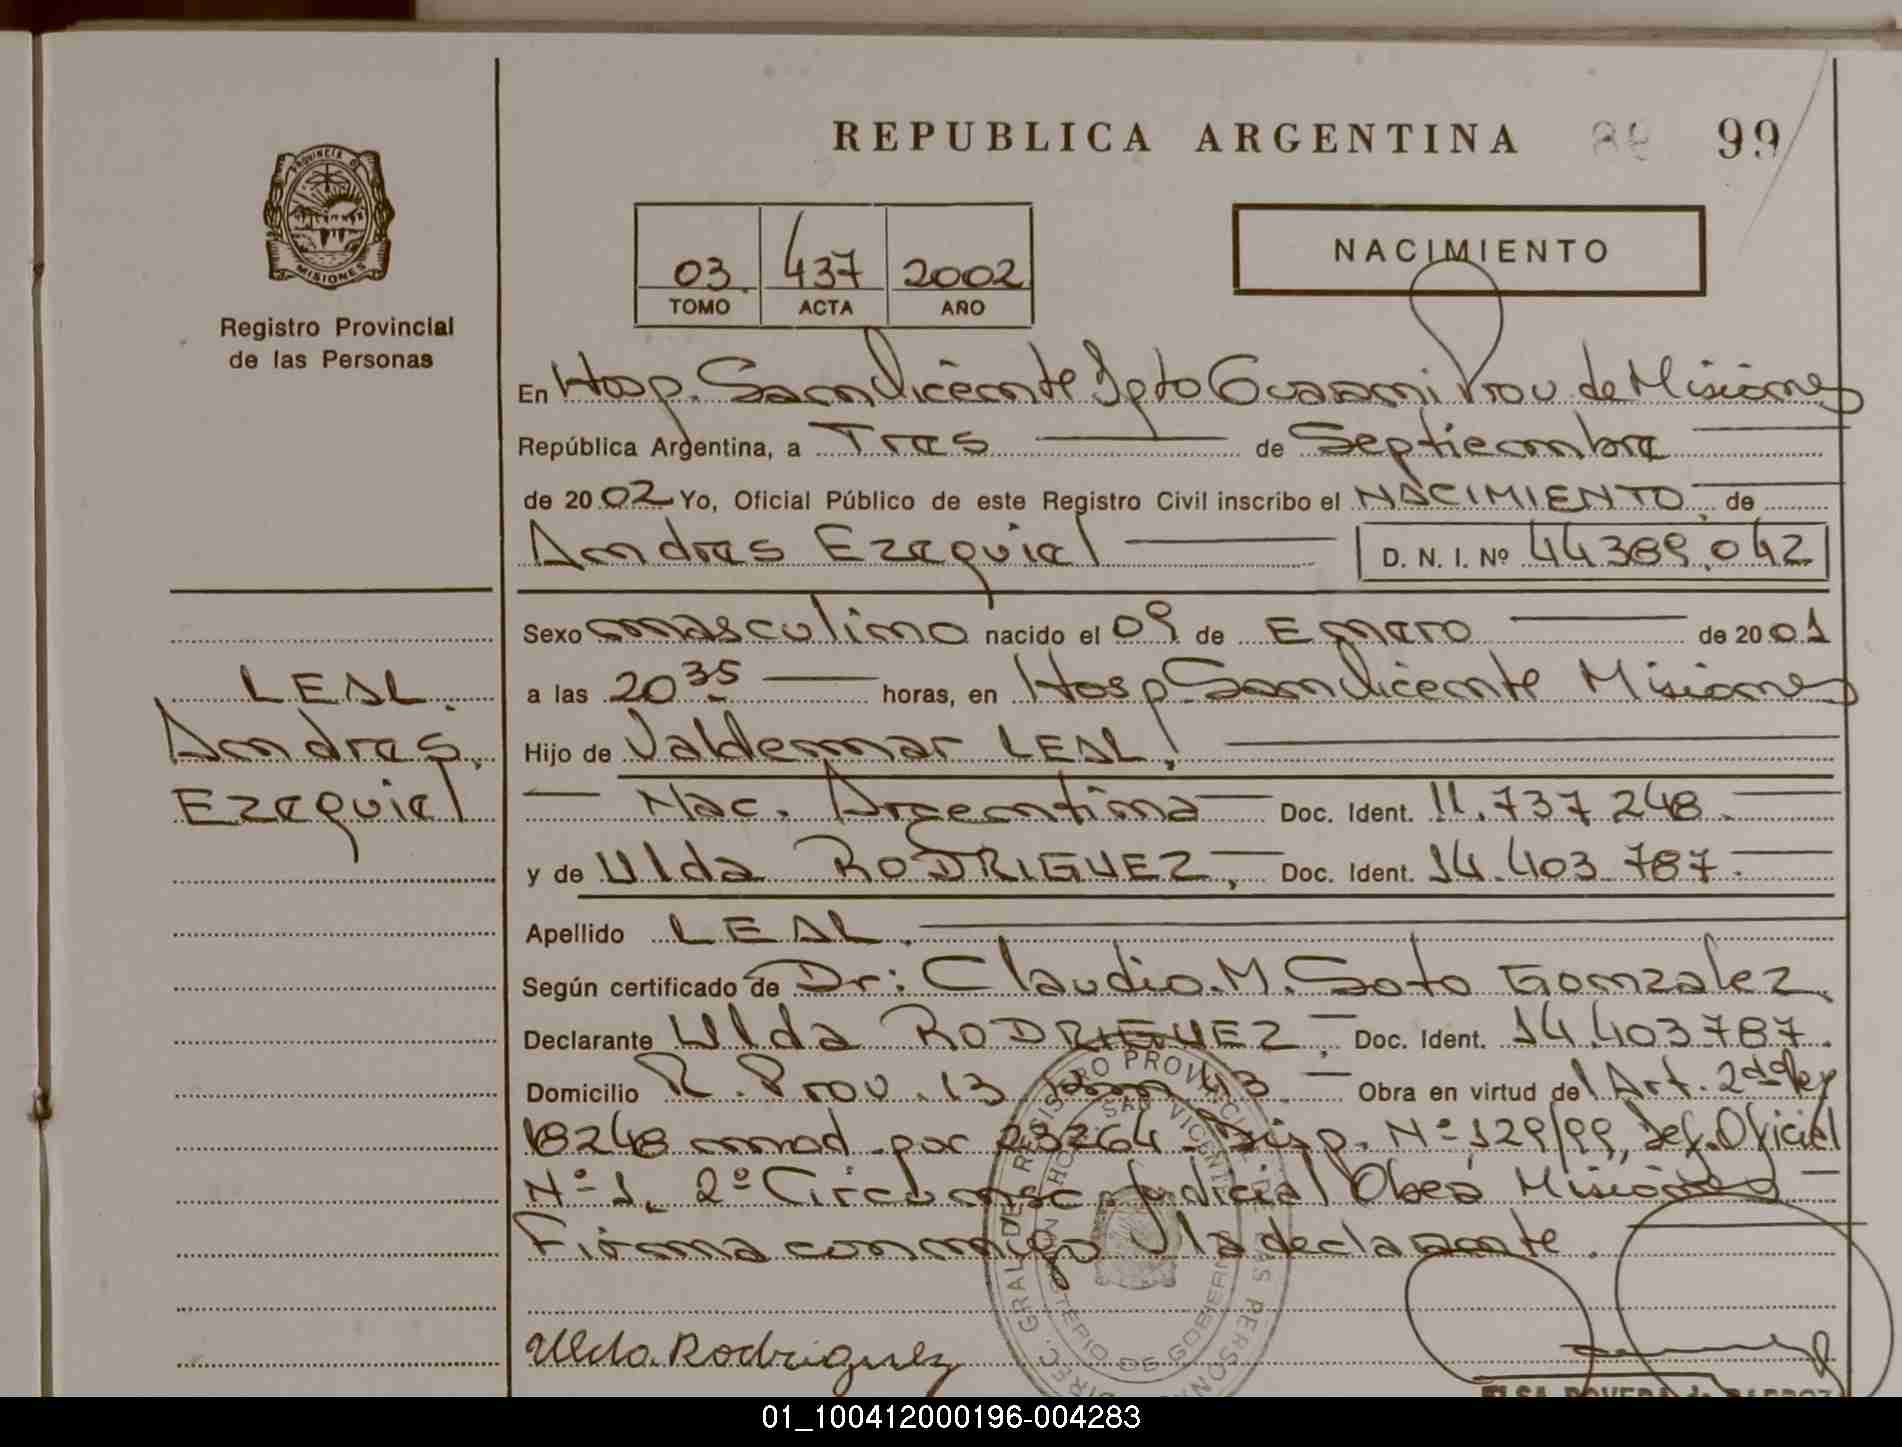 REPUBLICA ARGENTINA 99
PROVINCIA DE
MISIONES
Registro Provincial
de las Personas
03 437 2002
TOMO ACTA AÑO
NACIMIENTO
En Hosp. San Vicente Dpto Guarani Prov. de Misiones
República Argentina, a Tres de Septiembre
de 2002 Yo, Oficial Público de este Registro Civil inscribo el NACIMIENTO de
Andres Ezequiel D. N. I. Nº 44.389.042
Sexo masculino nacido el 09 de Enero de 2001
a las 20 35 horas, en Hosp San Vicente Misiones
Hijo de Valdemar LEAL
Nac. Argentina Doc. Ident. 11.737.248.
y de Ulda RODRIGUEZ, Doc. Ident. 14.403.787.
Apellido LEAL.
Según certificado de Dr: Claudio. M. Soto Gonzalez.
Declarante Ulda RODRIGUEZ, Doc. Ident. 14.403787.
Domicilio R. Prov. 13 km 43. Obra en virtud del Art. 2 de Ley
18248 mod. por 23264. Disp. Nº 129/99, Def. Oficial
Nº 1, 2º Circunsc. Judicial Obera Misiones
Firma conmigo la declarante.
LEAL.
Andres,
Ezequiel
Ulda Rodriguez
DIREC. GRAL. DE REGISTRO PROVINCIAL DE LAS PERSONAS
SAN VICENTE
MINISTERIO DE GOBIERNO
01_100412000196-004283